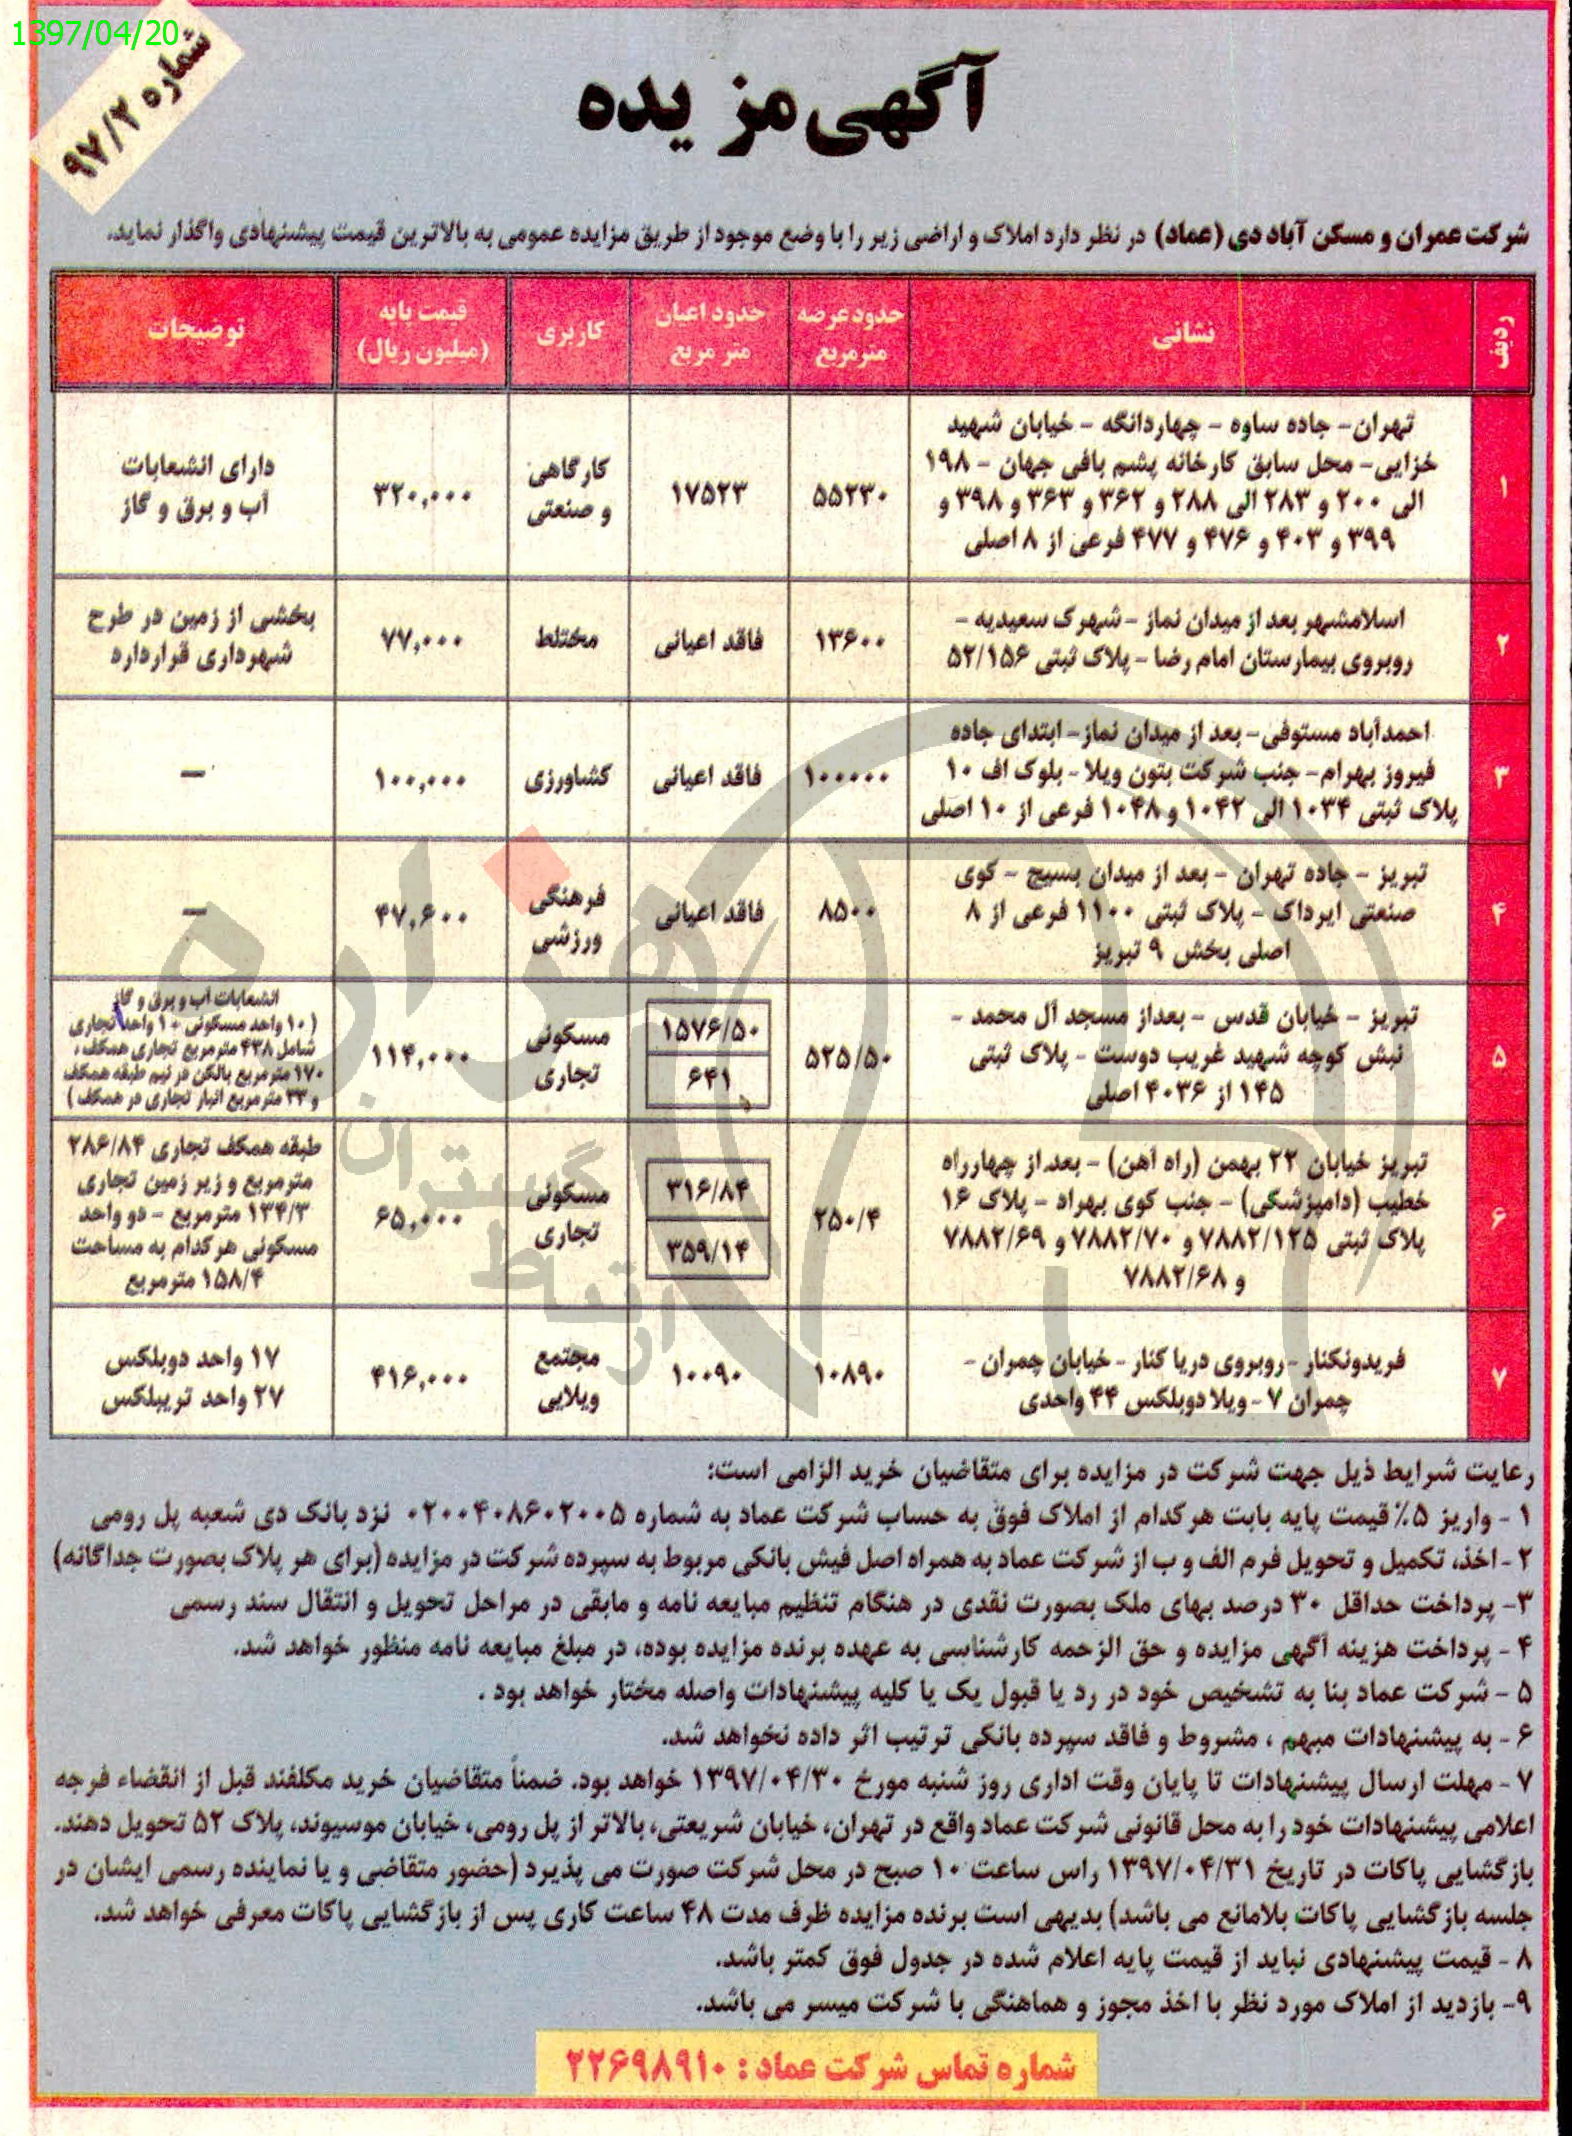 1397/04/20
شماره ۹۷/۲
آگهی مزایده
شرکت عمران و مسکن آباد دی (عماد) در نظر دارد املاک و اراضی زیر را با وضع موجود از طریق مزایده عمومی به بالاترین قیمت پیشنهادی واگذار نماید.
ردیف
نشانی
حدود عرضه
مترمربع
حدود اعیان
متر مربع
کاربری
قیمت پایه
(میلیون ریال)
توضیحات
۱
تهران- جاده ساوه - چهاردانگه - خیابان شهید
خزایی- محل سابق کارخانه پشم بافی جهان - ۱۹۸
الی ۲۰۰ و ۲۸۳ الی ۲۸۸ و ۳۶۲ و ۳۶۳ و ۳۹۸ و
۳۹۹ و ۴۰۳ و ۴۷۶ و ۴۷۷ فرعی از ۸ اصلی
۵۵۲۳۰
۱۷۵۲۳
کارگاهی
و صنعتی
۳۲۰,۰۰۰
دارای انشعابات
آب و برق و گاز
۲
اسلامشهر بعد از میدان نماز - شهرک سعیدیه -
روبروی بیمارستان امام رضا - پلاک ثبتی ۵۲/۱۵۶
۱۳۶۰۰
فاقد اعیانی
مختلط
۷۷,۰۰۰
بخشی از زمین در طرح
شهرداری قرارداره
۳
احمدآباد مستوفی- بعد از میدان نماز- ابتدای جاده
فیروز بهرام- جنب شرکت بتون ویلا- بلوک اف ۱۰
پلاک ثبتی ۱۰۳۴ الی ۱۰۴۲ و ۱۰۴۸ فرعی از ۱۰ اصلی
۱۰۰۰۰۰
فاقد اعیانی
کشاورزی
۱۰۰,۰۰۰
—
۴
تبریز - جاده تهران - بعد از میدان بسیج - کوی
صنعتی ایرداک - پلاک ثبتی ۱۱۰۰ فرعی از ۸
اصلی بخش ۹ تبریز
۸۵۰۰
فاقد اعیانی
فرهنگی
ورزشی
۴۷,۶۰۰
—
۵
تبریز - خیابان قدس - بعداز مسجد آل محمد -
نبش کوچه شهید غریب دوست - پلاک ثبتی
۱۴۵ از ۴۰۳۶ اصلی
۵۲۵/۵۰
۱۵۷۶/۵۰
۶۴۱
مسکونی
تجاری
۱۱۴,۰۰۰
انشعابات آب و برق و گاز
(۱۰ واحد مسکونی + ۱ واحد تجاری
شامل ۴۳۸ مترمربع تجاری همکف،
۱۷۰ مترمربع بالکن در نیم طبقه همکف
و ۳۳ مترمربع انبار تجاری در همکف)
۶
تبریز خیابان ۲۲ بهمن (راه آهن) - بعد از چهارراه
خطیب (دامپزشکی) - جنب کوی بهراد - پلاک ۱۶
پلاک ثبتی ۷۸۸۲/۱۲۵ و ۷۸۸۲/۷۰ و ۷۸۸۲/۶۹
و ۷۸۸۲/۶۸
۲۵۰/۴
۳۱۶/۸۴
۳۵۹/۱۴
مسکونی
تجاری
۶۵,۰۰۰
طبقه همکف تجاری ۲۸۶/۸۴
مترمربع و زیر زمین تجاری
۱۳۴/۳ مترمربع - دو واحد
مسکونی هرکدام به مساحت
۱۵۸/۴ مترمربع
۷
فریدونکنار - روبروی دریا کنار - خیابان چمران -
چمران ۷ - ویلا دوبلکس ۴۴ واحدی
۱۰۸۹۰
۱۰۰۹۰
مجتمع
ویلایی
۴۱۶,۰۰۰
۱۷ واحد دوبلکس
۲۷ واحد تریبلکس
رعایت شرایط ذیل جهت شرکت در مزایده برای متقاضیان خرید الزامی است:
۱ - واریز ۵٪ قیمت پایه بابت هرکدام از املاک فوق به حساب شرکت عماد به شماره ۰۲۰۰۴۰۸۶۰۲۰۰۵ نزد بانک دی شعبه پل رومی
۲ - اخذ، تکمیل و تحویل فرم الف و ب از شرکت عماد به همراه اصل فیش بانکی مربوط به سپرده شرکت در مزایده (برای هر پلاک بصورت جداگانه)
۳- پرداخت حداقل ۳۰ درصد بهای ملک بصورت نقدی در هنگام تنظیم مبایعه نامه و مابقی در مراحل تحویل و انتقال سند رسمی
۴ - پرداخت هزینه آگهی مزایده و حق الزحمه کارشناسی به عهده برنده مزایده بوده، در مبلغ مبایعه نامه منظور خواهد شد.
۵ - شرکت عماد بنا به تشخیص خود در رد یا قبول یک یا کلیه پیشنهادات واصله مختار خواهد بود .
۶ - به پیشنهادات مبهم ، مشروط و فاقد سپرده بانکی ترتیب اثر داده نخواهد شد.
۷ - مهلت ارسال پیشنهادات تا پایان وقت اداری روز شنبه مورخ ۱۳۹۷/۰۴/۳۰ خواهد بود. ضمناً متقاضیان خرید مکلفند قبل از انقضاء فرجه
اعلامی پیشنهادات خود را به محل قانونی شرکت عماد واقع در تهران، خیابان شریعتی، بالاتر از پل رومی، خیابان موسیوند، پلاک ۵۲ تحویل دهند.
بازگشایی پاکات در تاریخ ۱۳۹۷/۰۴/۳۱ راس ساعت ۱۰ صبح در محل شرکت صورت می پذیرد (حضور متقاضی و یا نماینده رسمی ایشان در
جلسه بازگشایی پاکات بلامانع می باشد) بدیهی است برنده مزایده ظرف مدت ۴۸ ساعت کاری پس از بازگشایی پاکات معرفی خواهد شد.
۸ - قیمت پیشنهادی نباید از قیمت پایه اعلام شده در جدول فوق کمتر باشد.
۹- بازدید از املاک مورد نظر با اخذ مجوز و هماهنگی با شرکت میسر می باشد.
شماره تماس شرکت عماد : ۲۲۶۹۸۹۱۰
هزاره
ارتباط گستران